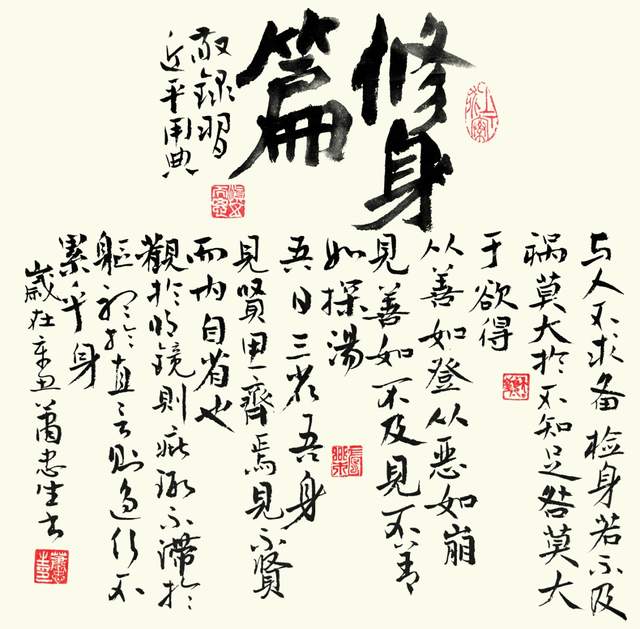 修身
篇
敬録習
近平用典
与人不求备检身若不及
祸莫大於不知足咎莫大
于欲得
从善如登从恶如崩
見善如不及見不善
如探湯
吾日三省吾身
見賢思齊焉見不賢
而内自省也
觀於明鏡則疵瑕不滯於
軀聽於直言則過行不
累乎身
歲在辛丑蕭忠生书